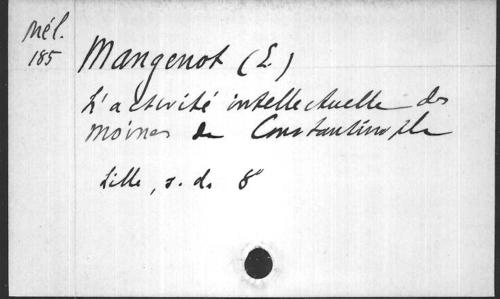 Mél.
185
Mangenot (E.)
L'activité intellectuelle des
moines de Constantinople
Lille, s. d. 8°